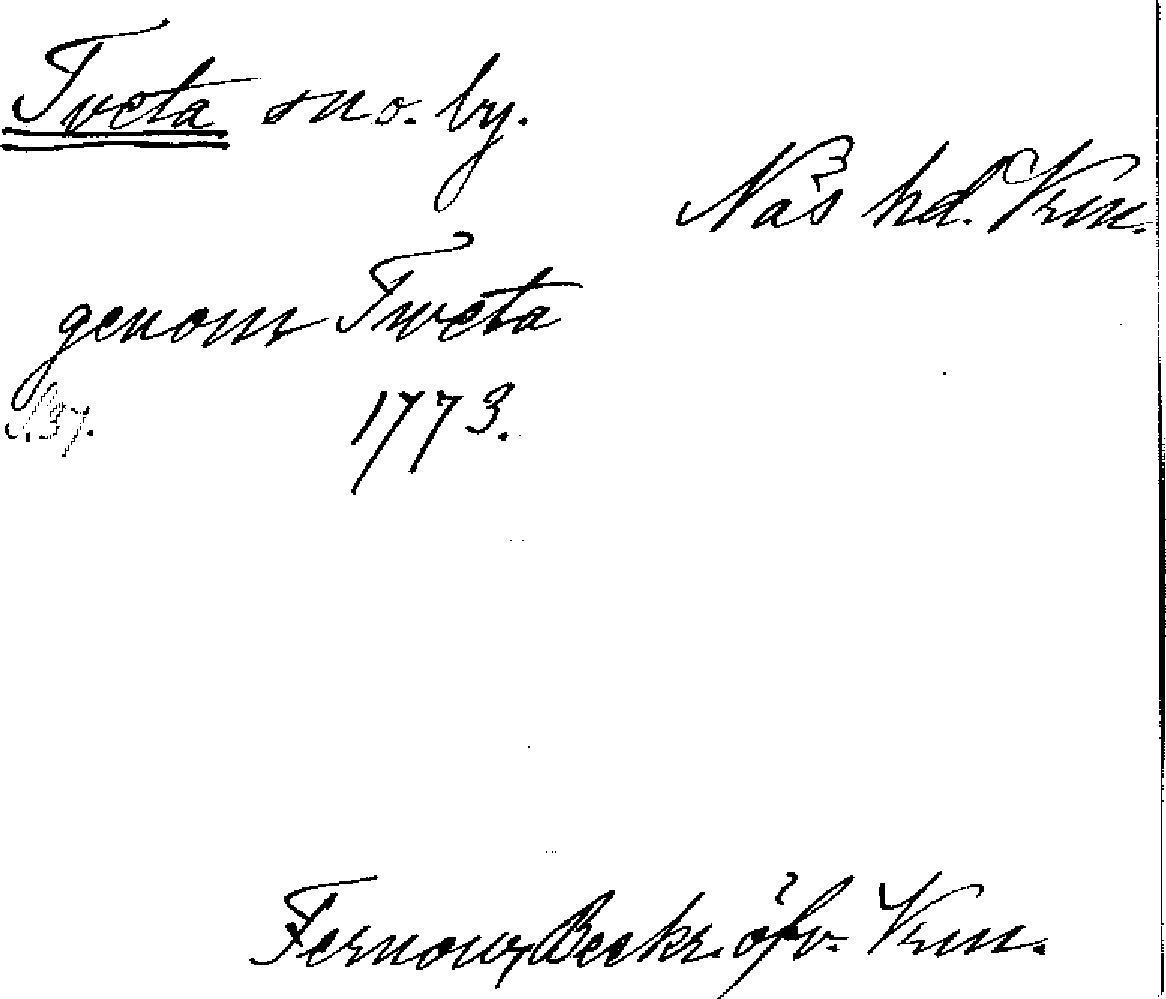 Tveta sn o. by.
Näs hd. Vrm.
genom Tweta
S. 37. 1773.
Fernow, Beskr. öfv. Vrm.